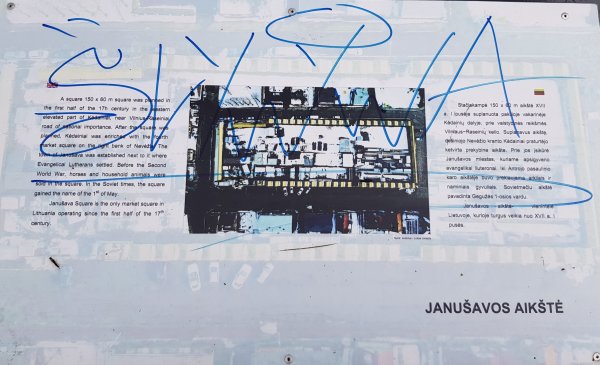 A square 150 x 80 m square was planned in
the first half of the 17h century in the eastern
elevated part of Kėdainiai, near Vilnius-Raseiniai
road of national importance. After the square was
planned, Kėdainiai was enriched with the fourth
market square on the right bank of Nevėžis. The
town of Janušava was established next to it where
Evangelical Lutherans settled. Before the Second
World War, horses and household animals were
sold in the square. In the Soviet times, the square
gained the name of the 1st of May.
Janušava Square is the only market square in
Lithuania operating since the first half of the 17th
century.
Stačiakampė 150 x 80 m aikštė XVII
a. I pusėje suplanuota pakilioje vakarinėje
Kėdainių dalyje, prie valstybinės reikšmės
Vilniaus–Raseinių kelio. Suplanavus aikštę,
dešiniojo Nevėžio kranto Kėdainiai praturtėjo
ketvirta prekybine aikšte. Prie jos įsikūrė
Janušavos miestas, kuriame apsigyveno
evangelikai liuteronai. Iki Antrojo pasaulinio
karo aikštėje buvo prekiaujama arkliais ir
naminiais gyvuliais. Sovietmečiu aikštė
pavadinta Gegužės 1-osios vardu.
Janušavos aikštė– vienintelė
Lietuvoje, kurioje turgus veikia nuo XVII a. I
pusės.
JANUŠAVOS AIKŠTĖ